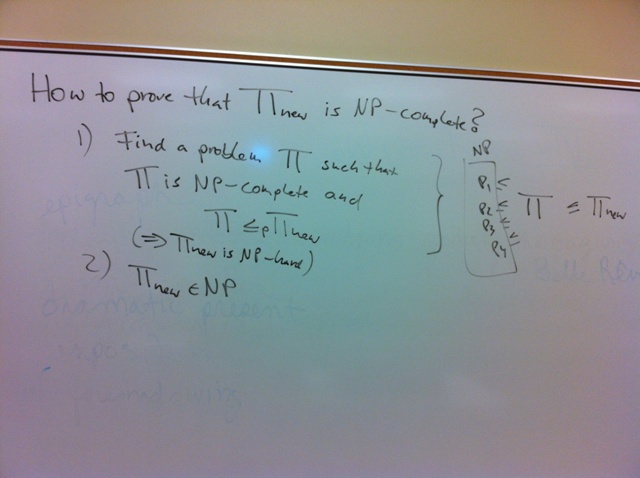 How to prove that Π new is NP-complete?
1) Find a problem Π such that
Π is NP-complete and
Π ≤p Πnew
(⇒ Πnew is NP-hard)
2) Πnew ∈ NP
NP
P1 ≤
P2 ≤ Π ≤ Πnew
P3 ≤
P4 ≤
epigra
dramatic present